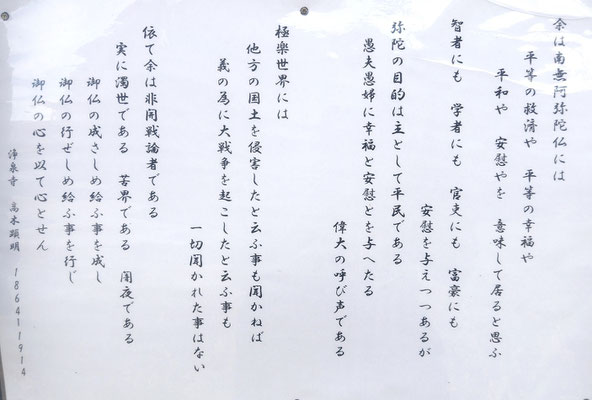 余は南無阿弥陀仏には
平等の救済や 平等の幸福や
平和や 安慰やを 意味して居ると思ふ
智者にも 学者にも 官吏にも 富豪にも
安慰を与えつつあるが
弥陀の目的は主として平民である
愚夫愚婦に幸福と安慰とを与へたる
偉大の呼び声である
極楽世界には
他方の国土を侵害したと云ふ事も聞かねば
義の為に大戦争を起こしたと云ふ事も
一切聞かれた事はない
依て余は非開戦論者である
実に濁世である 苦界である 闇夜である
御仏の成さしめ給ふ事を成し
御仏の行ぜしめ給ふ事を行じ
御仏の心を以て心とせん
浄泉寺 高木顕明 1864~1914